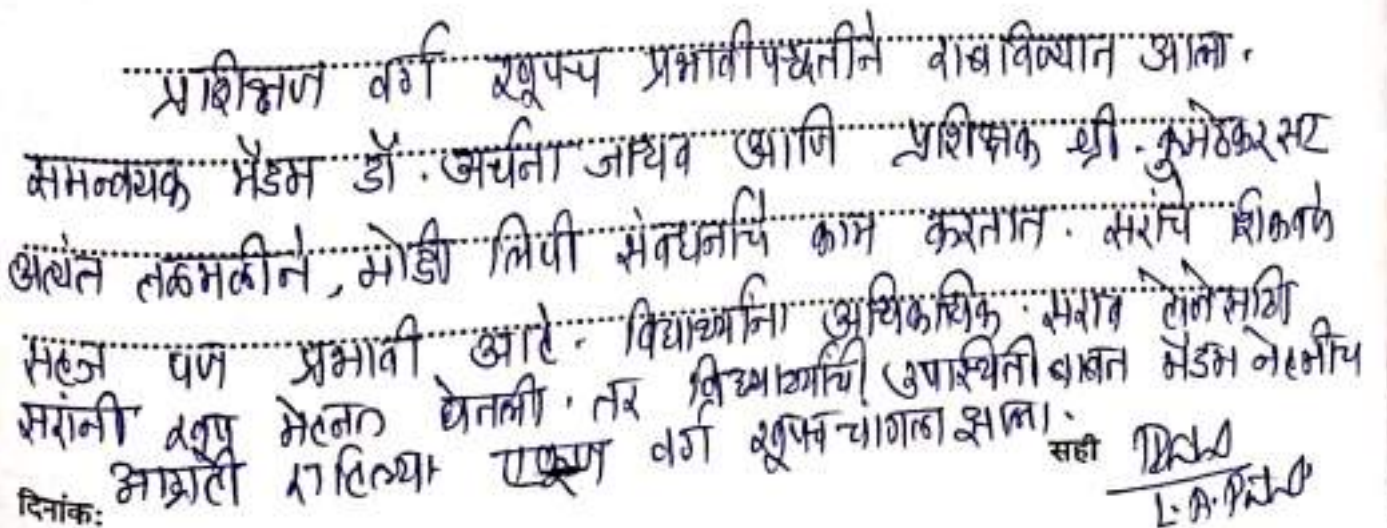 प्रशिक्षण वर्ग खूपच प्रभावीपध्दतीने राबविण्यात आला.
समन्वयक मॅडम डॉ. अर्चना जाधव आणि प्रशिक्षक श्री. कुमठेकर सर
अत्यंत तळमळीने, मोडी लिपी संवर्धनाचे काम करतात. सरांचे शिकवणे
सहज पण प्रभावी आहे. विद्यार्थ्यांना अधिकाधिक सराव होणेसाठी
सरांनी खूप मेहनत घेतली. तर विद्यार्थ्यांची उपस्थिती बाबत मॅडम नेहमीच
आग्रही राहिल्या एकूण वर्ग खूपच चांगला झाला.
सही
दिनांक: